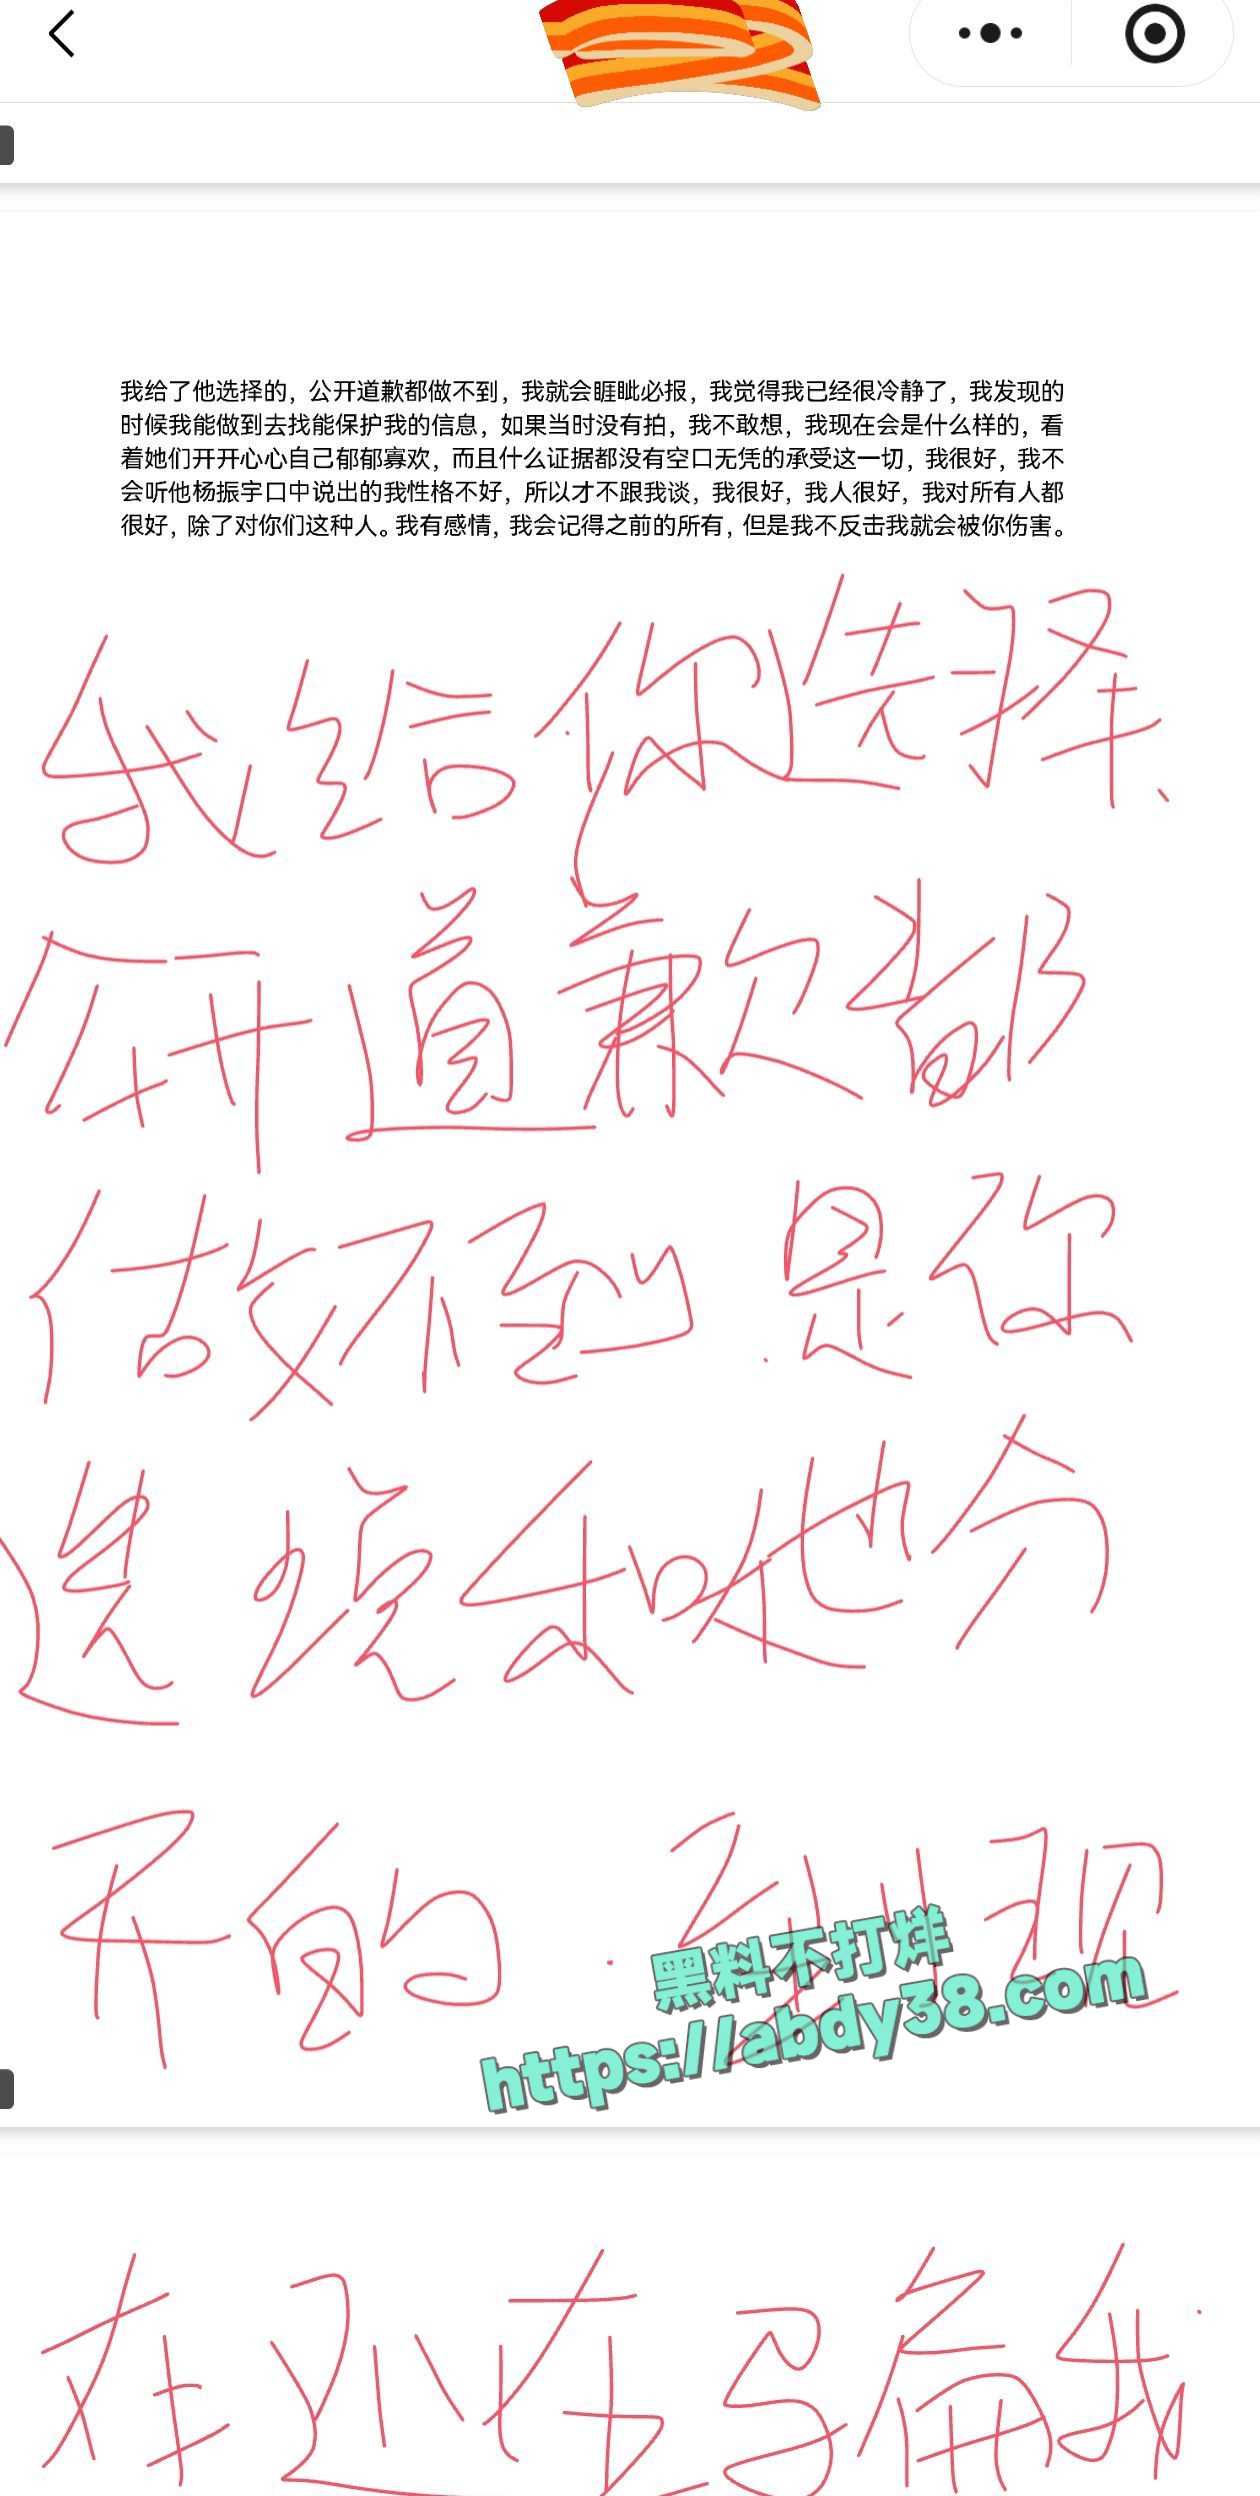 我给了他选择的，公开道歉都做不到，我就会睚眦必报，我觉得我已经很冷静了，我发现的
时候我能做到去找能保护我的信息，如果当时没有拍，我不敢想，我现在会是什么样的，看
着她们开开心心自己郁郁寡欢，而且什么证据都没有空口无凭的承受这一切，我很好，我不
会听他杨振宇口中说出的我性格不好，所以才不跟我谈，我很好，我人很好，我对所有人都
很好，除了对你们这种人。我有感情，我会记得之前的所有，但是我不反击我就会被你伤害。
我给你选择、
公开道歉都
做不到.是你
选择和她分
开的.到现
在还在骗我
黑料不打烊
https://abdy38.com